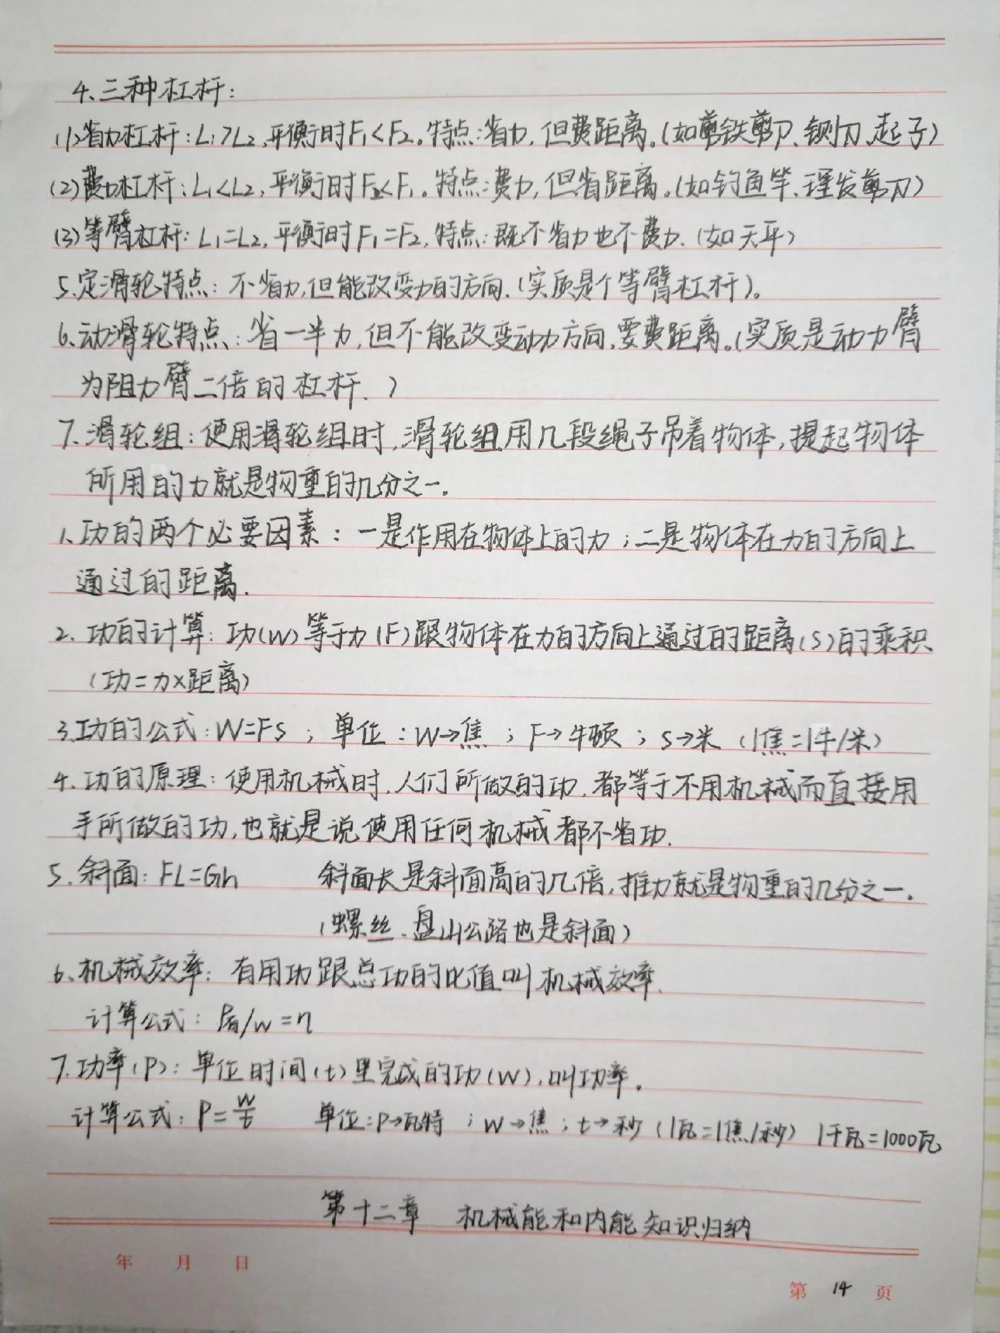 4、三种杠杆:
(1)省力杠杆:L₁>L₂,平衡时F₁<F₂。特点:省力,但费距离。(如剪铁剪刀、铡刀、起子)
(2)费力杠杆:L₁<L₂,平衡时F₂<F₁。特点:费力,但省距离。(如钓鱼竿、理发剪刀)
(3)等臂杠杆:L₁=L₂,平衡时F₁=F₂,特点:既不省力也不费力.(如天平)
5、定滑轮特点:不省力,但能改变力的方向.(实质是个等臂杠杆)。
6、动滑轮特点:省一半力,但不能改变动力方向,要费距离。(实质是动力臂
为阻力臂二倍的杠杆.)
7、滑轮组:使用滑轮组时,滑轮组用几段绳子吊着物体,提起物体
所用的力就是物重的几分之一.
1、功的两个必要因素:一是作用在物体上的力;二是物体在力的方向上
通过的距离.
2、功的计算:功(W)等于力(F)跟物体在力的方向上通过的距离(S)的乘积
(功=力×距离)
3.功的公式:W=FS;单位:W→焦;F→牛顿;S→米(1焦=1牛/米)
4、功的原理:使用机械时,人们所做的功,都等于不用机械而直接用
手所做的功,也就是说使用任何机械都不省功.
5.斜面:FL=Gh 斜面长是斜面高的几倍,推力就是物重的几分之一。
(螺丝、盘山公路也是斜面)
6、机械效率:有用功跟总功的比值叫机械效率.
计算公式:/W=η
7、功率(P):单位时间(t)里完成的功(W),叫功率.
计算公式:P=W/t 单位:P→瓦特;W→焦;t→秒(1瓦=1焦/秒) 1千瓦=1000瓦
第十二章 机械能和内能知识归纳
年 月 日
第 14 页